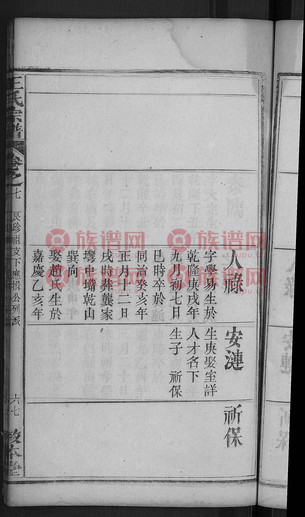 人祿
字學易生於
乾隆庚戌年
九月初七日
巳時卒於
同治癸亥年
正月十二日
戌時葬龔家
壪中墳乾山
巽向
娶趙氏生於
嘉慶乙亥年
安漣
生庚娶室詳
人才名下
生子 祈保
祈保
王氏宗譜
卷之七
六七
敦本堂
族谱网